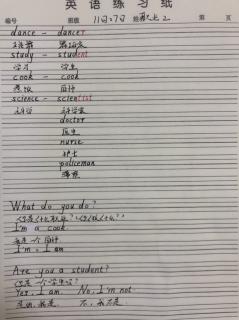 英语练习纸
编号 班级 11月7日 姓名 第 页
dance - dancer
跳舞 舞蹈家
study - student
学习 学生
cook - cook
煮饭 厨师
science - scientist
科学 科学家
doctor
医生
nurse
护士
policeman
警察
What do you do?
I'm a cook.
我是一个厨师
I'm = I am
Are you a student?
你是一个学生吗?
Yes, I am No, I'm not
是的,我是 不,我不是